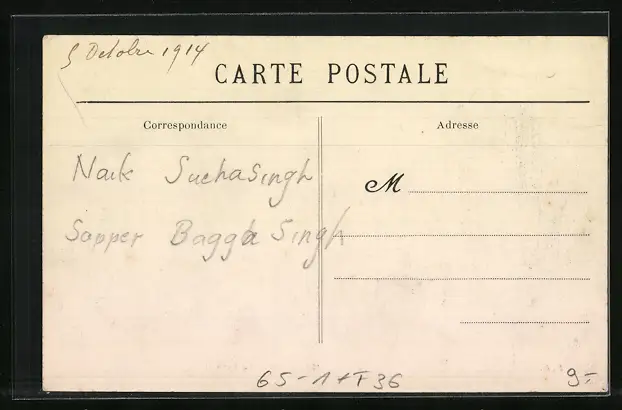 5 Octobre 1914
CARTE POSTALE
Correspondance
Adresse
Naik Sucha Singh
Sapper Bagga Singh
M
65-1 + F36
9.-